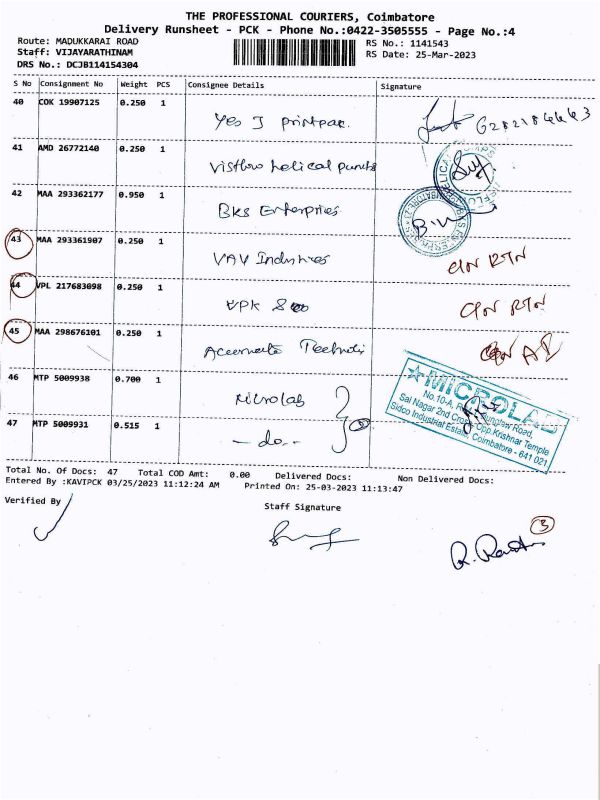 THE PROFESSIONAL COURIERS, Coimbatore
Delivery Runsheet - PCK - Phone No.:0422-3505555 - Page No.:4
Route: MADUKKARAI ROAD
Staff: VIJAYARATHINAM
DRS No.: DCJB114154304
RS No.: 1141543
RS Date: 25-Mar-2023
S No Consignment No Weight PCS Consignee Details Signature
40 COK 19907125 0.250 1 Yes I printpac. 6282184443
41 AMD 26772140 0.250 1 Visflow helical punchs
42 MAA 293362177 0.950 1 BKS Enterprises
43 MAA 293361907 0.250 1 VAV Industries CN RTN
44 VPL 217683098 0.250 1 VPK CN RTN
45 MAA 298676101 0.250 1 CN
46 MTP 5009938 0.700 1 Microlab
47 MTP 5009931 0.515 1 - do -
MICROLAB
Sai Nagar 2nd Cross, Opp.Krishnar Temple
Sidco Industrial Estate, Coimbatore - 641 021
Total No. Of Docs: 47 Total COD Amt: 0.00 Delivered Docs: Non Delivered Docs:
Entered By :KAVIPCK 03/25/2023 11:12:24 AM Printed On: 25-03-2023 11:13:47
Verified By
Staff Signature
3